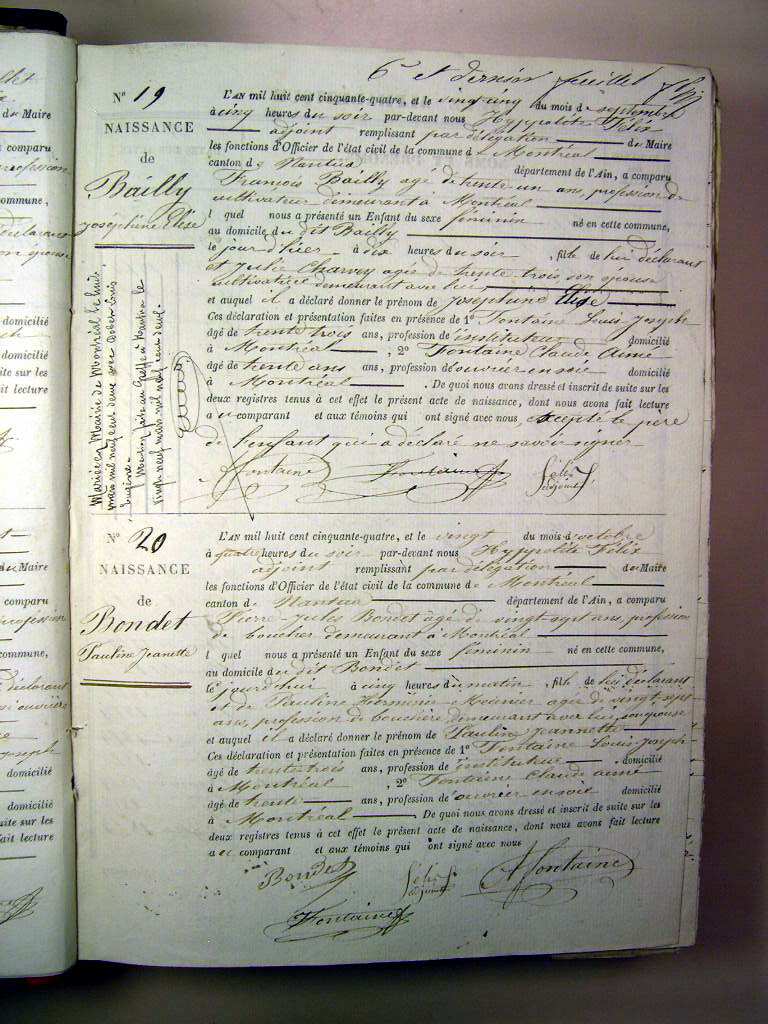 6e et dernier feuillet
No 19
NAISSANCE
de
Bailly
Joséphine Elise
Mariée en Mairie de Montréal le huit
mars mil neuf cent deux avec
Eugène.
Mention faite au Greffe à Nantua le
vingt neuf mars mil neuf cent deux.
L'AN mil huit cent cinquante-quatre, et le vingt cinq du mois de septembre
à cinq heures du soir par-devant nous Hyppolite Félix
adjoint remplissant par délégation du Maire
les fonctions d'Officier de l'état civil de la commune de Montréal
canton de Nantua département de l'Ain, a comparu
François Bailly agé de trente un ans, profession de
cultivateur demeurant à Montréal
l quel nous a présenté un Enfant du sexe féminin né en cette commune,
au domicile du dit Bailly
le jour d'hier à dix heures du soir , fille de lui déclarant
et Julie Charvey agée de trente trois son épouse
cultivatrice demeurant avec lui
et auquel il a déclaré donner le prénom de Joséphine Elise
Ces déclaration et présentation faites en présence de 1o Fontaine Louis Joseph
âgé de trente trois ans, profession de instituteur domicilié
à Montréal , 2o Fontaine Claude Aimé
âgé de trente ans ans, profession d'ouvrier en soie domicilié
à Montréal . De quoi nous avons dressé et inscrit de suite sur les
deux registres tenus à cet effet le présent acte de naissance, dont nous avons fait lecture
a u comparant et aux témoins qui ont signé avec nous, excepté le père
de l'enfant qui a déclaré ne savoir signer
Fontaine Fontaine Félix
adjoint
No 20
NAISSANCE
de
Bondet
Pauline Jeanette
L'AN mil huit cent cinquante-quatre, et le vingt du mois d'octobre
à quatre heures du soir par-devant nous Hyppolite Félix
adjoint remplissant par délégation du Maire
les fonctions d'Officier de l'état civil de la commune de Montréal
canton de Nantua département de l'Ain, a comparu
Pierre Jules Bondet agé de vingt sept ans, profession
de boucher demeurant à Montréal
l quel nous a présenté un Enfant du sexe féminin né en cette commune,
au domicile du dit Bondet
le jourd'hui à cinq heures du matin , fille de lui déclarant
et de Pauline Herminie Mounier agée de vingt sept
ans, profession de bouchère demeurant avec lui, son épouse
et auquel il a déclaré donner le prénom de Pauline Jeannette
Ces déclaration et présentation faites en présence de 1o Fontaine Louis Joseph
âgé de trente trois ans, profession de instituteur domicilié
à Montréal , 2o Fontaine Claude aimé
âgé de trente ans, profession d'ouvrier en soie domicilié
à Montréal . De quoi nous avons dressé et inscrit de suite sur les
deux registres tenus à cet effet le présent acte de naissance, dont nous avons fait lecture
a u comparant et aux témoins qui ont signé avec nous
Bondet Félix adjoint Fontaine
Fontaine